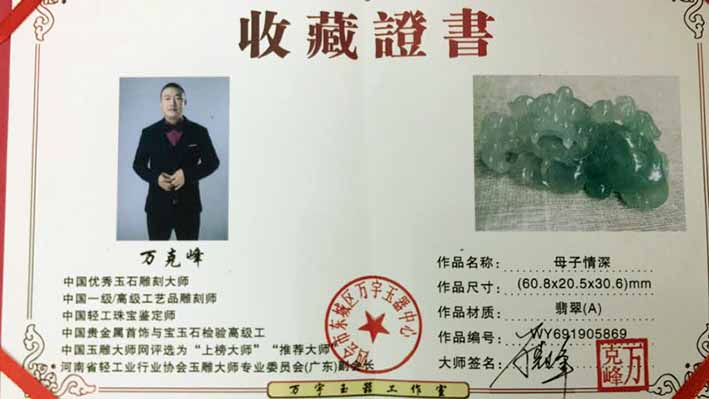 收藏證書
万克峰
中国优秀玉石雕刻大师
中国一级/高级工艺品雕刻师
中国轻工珠宝鉴定师
中国贵金属首饰与宝玉石检验高级工
中国玉雕大师网评选为“上榜大师”“推荐大师”
河南省轻工业行业协会玉雕大师专业委员会(广东)副会长
作品名称: 母子情深
作品尺寸: (60.8x20.5x30.6)mm
作品材质: 翡翠(A)
作品编号: WY691905869
大师签名: 万克峰
万克峰
四会市东城区万宇玉器中心
万宇玉器工作室